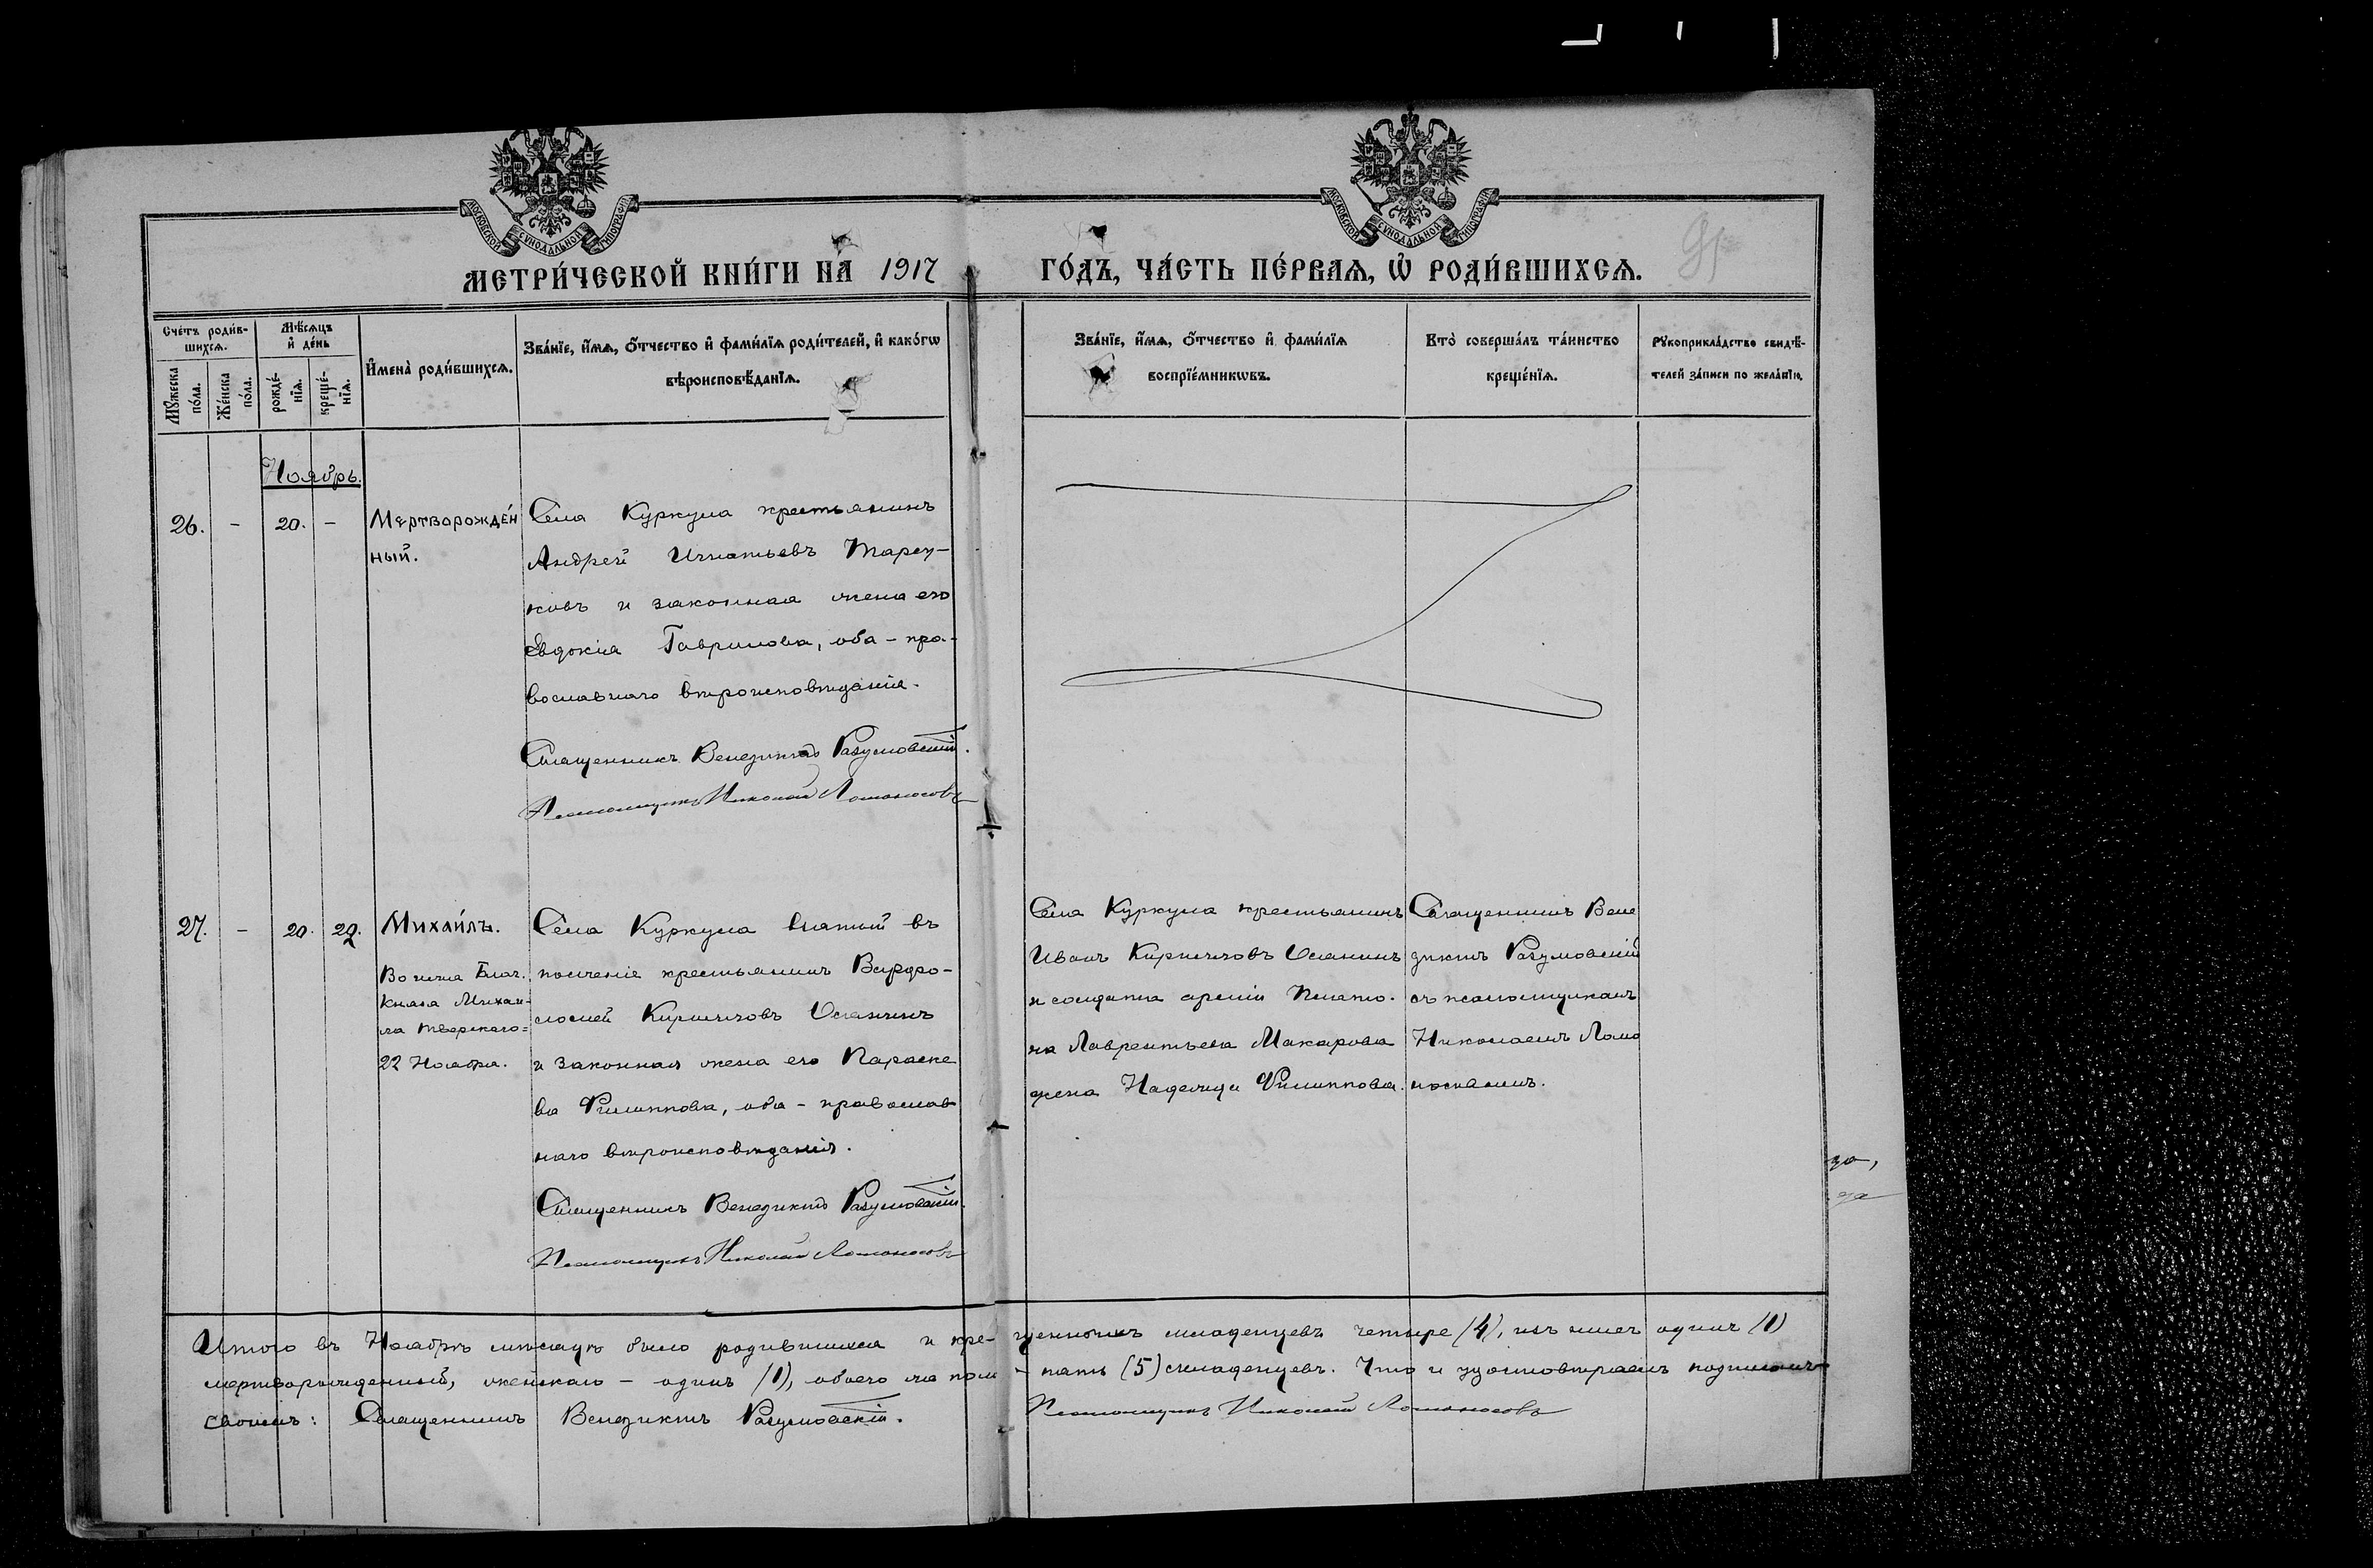 МОСКОВСКОЙ СУНОДАЛЬНОЙ ТИПОГРАФІИ
МОСКОВСКОЙ СУНОДАЛЬНОЙ ТИПОГРАФІИ
МЕТРИ́ЧЕСКОЙ КНИ́ГИ НА 1917
ГО́ДЪ, ЧА́СТЬ ПЕ́РВАѦ, Ѡ РОДИ́ВШИХСѦ.
Сче́тъ роди́в-
шихсѧ.
Мѣ́сѧцъ
и҆ де́нь
И҆мена̀ роди́вшихсѧ.
Зва́нїе, и҆́мѧ, ѻ҆́тчество и҆ фами́лїѧ роди́телей, и҆ како́гѡ
вѣроисповѣ́данїѧ.
Мꙋ́жеска
по́ла.
Же́нска
по́ла.
рожде́-
нїѧ.
креще́-
нїѧ.
Зва́нїе, и҆́мѧ, ѻ҆́тчество и҆ фами́лїѧ
воспрїе́мникѡвъ.
Кто̀ соверша́лъ та́инство
креще́нїѧ.
Рꙋкоприкла́дство свидѣ́-
телей за́писи по жела́нїю.
Ноябрь.
26. - 20. - Мертворожде́н
ный.
Села Куркула крестьянинъ
Андрей Игнатьевъ Тарсу-
ковъ и законная жена его
Евдокія Гаврилова, оба - пра-
вославнаго вѣроисповѣданія.
Священникъ Венедиктъ Разумовскій.
Псаломщикъ Николай Ломоносовъ
27. - 20. 22. Михаи́лъ.
Во имя Благ.
Князя Михаи-
ла Тверскаго =
22 Ноября.
Села Куркула взятый въ
крестьянинъ
Кирилловъ Осанинъ
и законная жена его Параске
ва Филиппова, оба - православ
наго вѣроисповѣданія.
Священникъ Венедиктъ Разумовскій.
Псаломщикъ Николай Ломоносовъ
Села Куркула крестьянинъ
Иванъ Кирилловъ Осанинъ
и солдатка арміи Игнато.
на Лаврентьева Макарова
жена Надежда Филиппова.
Священникъ Вене
диктъ Разумовскій
съ псаломщикомъ
Николаемъ Ломо
носовымъ.
Итого въ Ноябрѣ мѣсяцѣ было родившихся и кре- щенныхъ младенцевъ четыре (4), изъ нихъ одинъ (1)
мертворожденный, женскаго - одинъ (1), обоего же пола - пять (5) младенцевъ. Что и удостовѣряемъ подписомъ
своимъ: Священникъ Венедиктъ Разумовскій. Псаломщикъ Николай Ломоносовъ